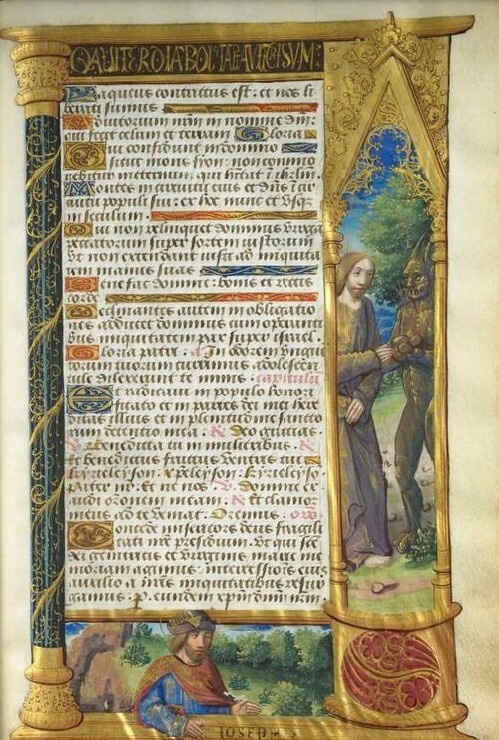 laqueus contritus est: et nos li
berati sumus
diutorium nrm in nomine dm:
qui fecit celum et terram Gloria
Qui confidunt in domino
sicut mons syon: non commo
qui hitat i ihrlm.
Montes in circuitu eius et dns i cir
cuitu populi sui: ex hoc nunc et usq
in seculum.
Quia non relinquet dominus virga
peccatorum super sortem iustorum
Vt non extendant iusti ad iniquita
tem manus suas
Benefac domine: bonis et rectis
corde
Declinantes autem in obligatio
nes adducet dominus cum operanti
bus iniquitatem pax super israel.
Gloria patri. in odorem ungue
torum tuorum currimus adolescen
tule dilexerunt te nimis. capitulu
Et radicaui in populo honori
ficato et in partes dei mei here
ditas illius et in plenitudine sancto
rum detentio mea. Deo gratias.
Benedicta tu in mulieribus.
Et benedictus fructus ventris tui
kyrieleyson. xpeleyson. kyrieleyso
Pater nr. Et ne nos. Domine ex
audi oronem meam. Et clamo
meus ad te veniat. Oremus. oro
Concede misericors deus fragili
tati nre presidium. Vt qui sce
dei genitricis et virginis marie me
moriam agimus: intercessionis eius
auxilio a nris iniquitatibus resur
gamus. P. eundem xpm dnm nrm.
IOSEPH